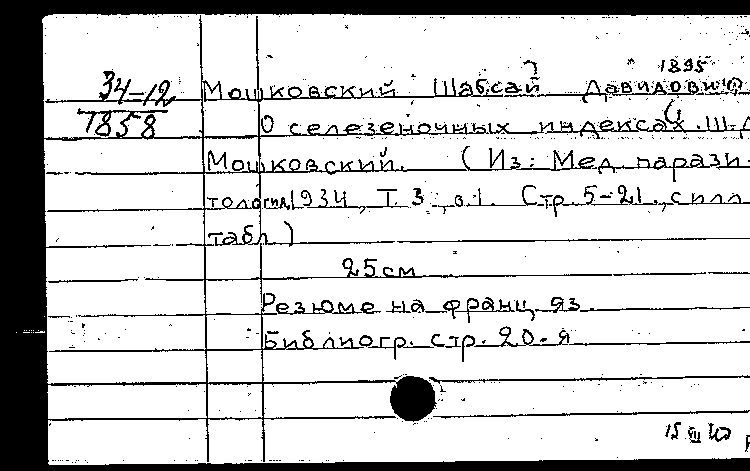 1895
34-12 Мошковский Шабсай Давидович
1858 О селезеночных индексах. Ш.Д
Мошковский. (Из: Мед. парази-
тология, 1934, Т. 3, в.1. Стр. 5-21., с илл
табл.)
25 см
Резюме на франц. яз.
Библиогр. стр. 20-я
15 VIII